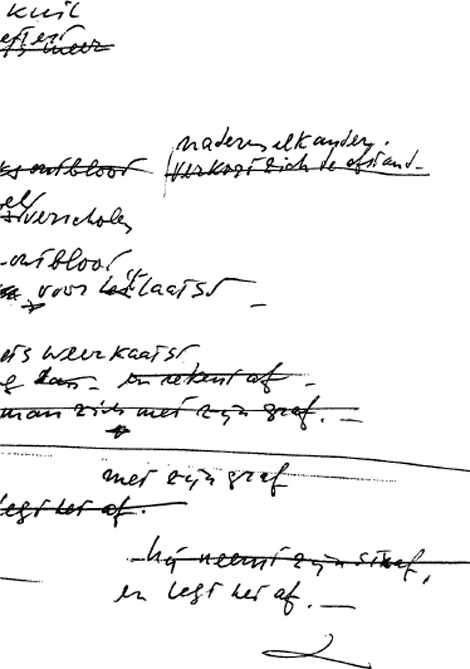 kuil
nader elkander.
verkort zich de afstand
ontbloot
verscholen
ontbloot
voor het laatst
weerkaatst
en rekent af
man zich met zijn graf.
met zijn graf
legt het af.
hij neemt zijn straf,
en legt het af.